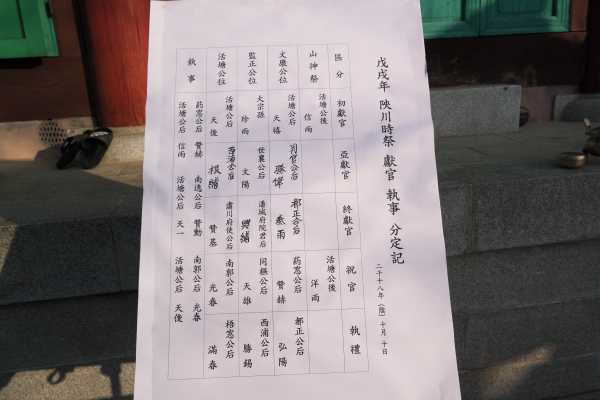 戊戌年 陜川時祭 獻官 執事 分定記
二千十八年(陰)十月十日
區分 初獻官 亞獻官 終獻官 祝官 執禮
山神祭 活塘公後 信雨 活塘公後 洋雨
文康公位 活塘公后 天禧 都正公后 泰雨 葯窓公后 贊赫 都正公后 弘陽
監正公位 大宗孫 珍雨 世襄公后 文陽 潘城府院君后 興緖 同樞公后 天雄 西浦公后 勝錫
活塘公位 活塘公后 天俊 肅川府使公后 贊基 南郭公后 光春 梧窓公后 滿春
執事 葯窓公后 贊赫 南逸公后 贊勳 南郭公后 光春
活塘公后 信雨 活塘公后 天一 活塘公后 天俊